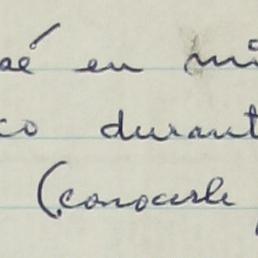 aé en mi
co durant
(conocerle